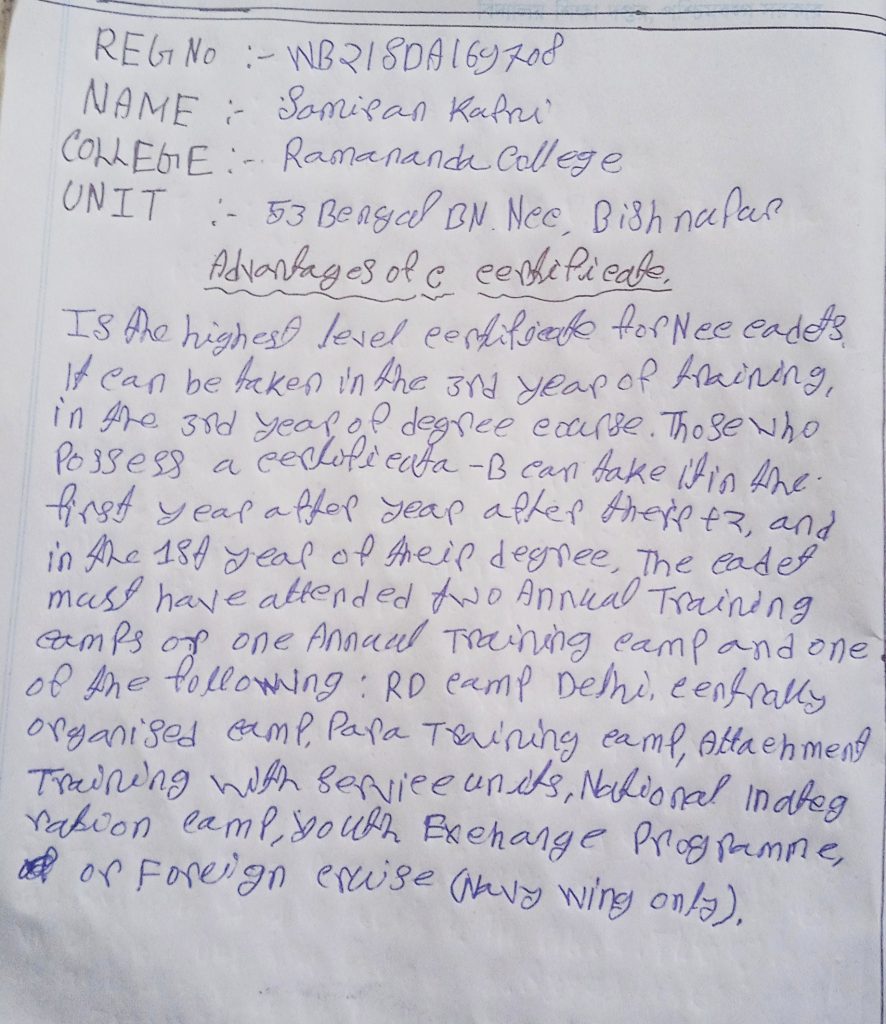 REG No :- WB21SDA169708
NAME :- Samiran Kafri
COLLEGE :- Ramananda College
UNIT :- 53 Bengal BN. Ncc, Bishnapar
Advantages of c certificate.
Is the highest level certificate for Ncc cadets.
It can be taken in the 3rd year of training,
in the 3rd year of degree course. Those who
Possess a certificata -B can take it in the
first year after year after their +2, and
in the 1st year of their degree, The cadet
must have attended two Annual Training
camps or one Annual Training camp and one
of the following : RD camp Delhi, centrally
organised camp, Para Training camp, Attachment
Training with service units, National Integ
ration camp, Youth Exchange Programme,
or Foreign cruise (Navy wing only).